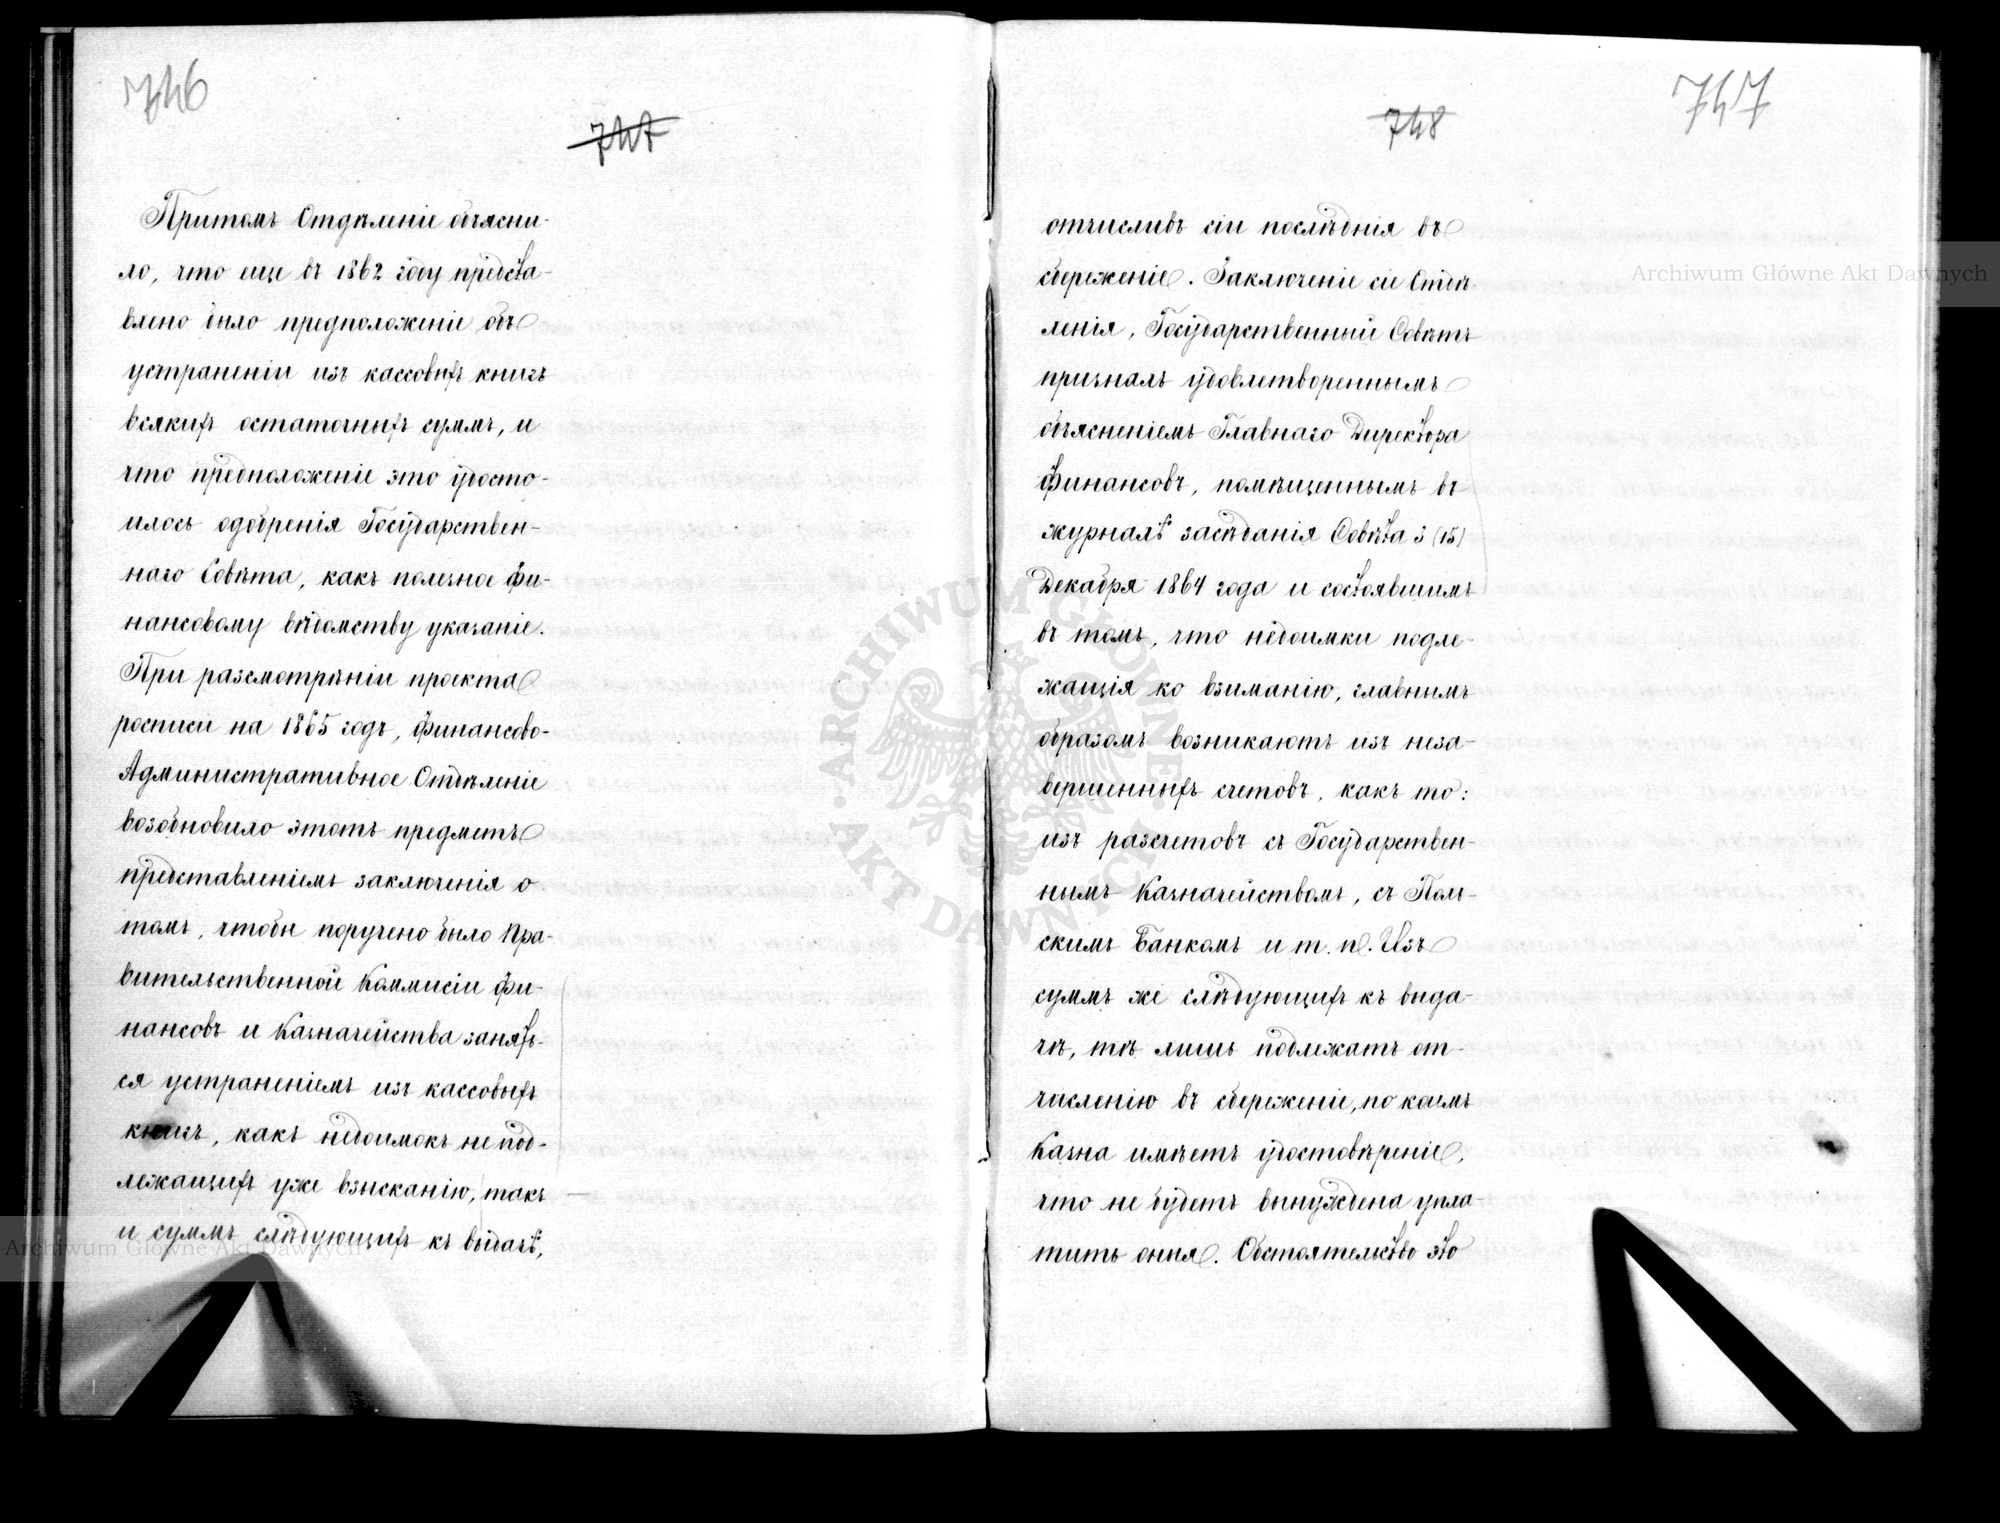 746
747
Притомъ Отдѣленіе объясни-
ло, что еще въ 1862 году предста-
влено было предположеніе объ
устраненіи изъ кассовыхъ книгъ
всякихъ остаточныхъ суммъ, и
что предположеніе это удосто-
илось одобренія Государствен-
наго Совѣта, какъ полезное фи-
нансовому вѣдомству указаніе.
При разсмотрѣніи проекта
росписи на 1865 годъ, Финансово-
Административное Отдѣленіе
возобновило этотъ предметъ
представленіемъ заключенія о
томъ, чтобы поручено было Пра-
вительственной Коммисіи Фи-
нансовъ и Казначейства занять-
ся устраненіемъ изъ кассовыхъ
книгъ, какъ недоимокъ не под-
лежащихъ уже взысканію, такъ
и суммъ слѣдующихъ къ выдачѣ,
748
747
отчисливъ сіи послѣднія въ
сбереженіе. Заключеніе сіе Отдѣ-
ленія, Государственный Совѣтъ
призналъ удовлетвореннымъ
объясненіемъ Главнаго Директора
Финансовъ, помѣщеннымъ въ
журналѣ засѣданія Совѣта 3 (15)
Декабря 1864 года и состоявшимъ
въ томъ, что недоимки подле-
жащія ко взиманію, главнымъ
образомъ возникаютъ изъ неза-
вершенныхъ счетовъ, какъ то:
изъ разсчетовъ съ Государствен-
нымъ Казначействомъ, съ Поль-
скимъ Банкомъ и т. п. Изъ
суммъ же слѣдующихъ къ выда-
чѣ, тѣ лишь подлежатъ от-
численію въ сбереженіе, по коимъ
Казна имѣетъ удостовѣреніе,
что не будетъ вынуждена упла-
тить оныя. Обстоятельство это
Archiwum Główne Akt Dawnych
Archiwum Główne Akt Dawnych
ARCHIWUM GŁÓWNE
AKT DAWNYCH